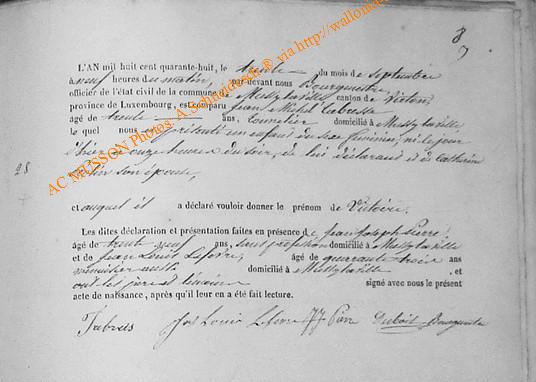 8
9
L'AN mil huit cent quarante-huit, le trente du mois de Septembre
à neuf heures du matin, par-devant nous Bourgmestre
officier de l'état civil de la commune de Mussy-la-ville canton de Virton,
province de Luxembourg, est comparu Jean Michel
âgé de trente ans, domicilié à Mussy-la-ville,
le quel nous a présenté un enfant du sexe féminin, né le jour
d'hier à onze heures du soir, de lui déclarant et de Catherine
son épouse,
28
et auquel il a déclaré vouloir donner le prénom de Victoire.
Les dites déclaration et présentation faites en présence de Jean Joseph Piere
âgé de trente neuf ans, sans profession domicilié à Mussy-la-ville
et de Jean Louis Lefevre, âgé de quarante trois ans
menuisier domicilié à Mussy-la-ville, et
ont les père et témoins signé avec nous le présent
acte de naissance, après qu'il leur en a été fait lecture.
Louis Lefevre JJ Piere Bourgmestre
AC MUSSON Photos A. Schneidesch ® via http://wallonia